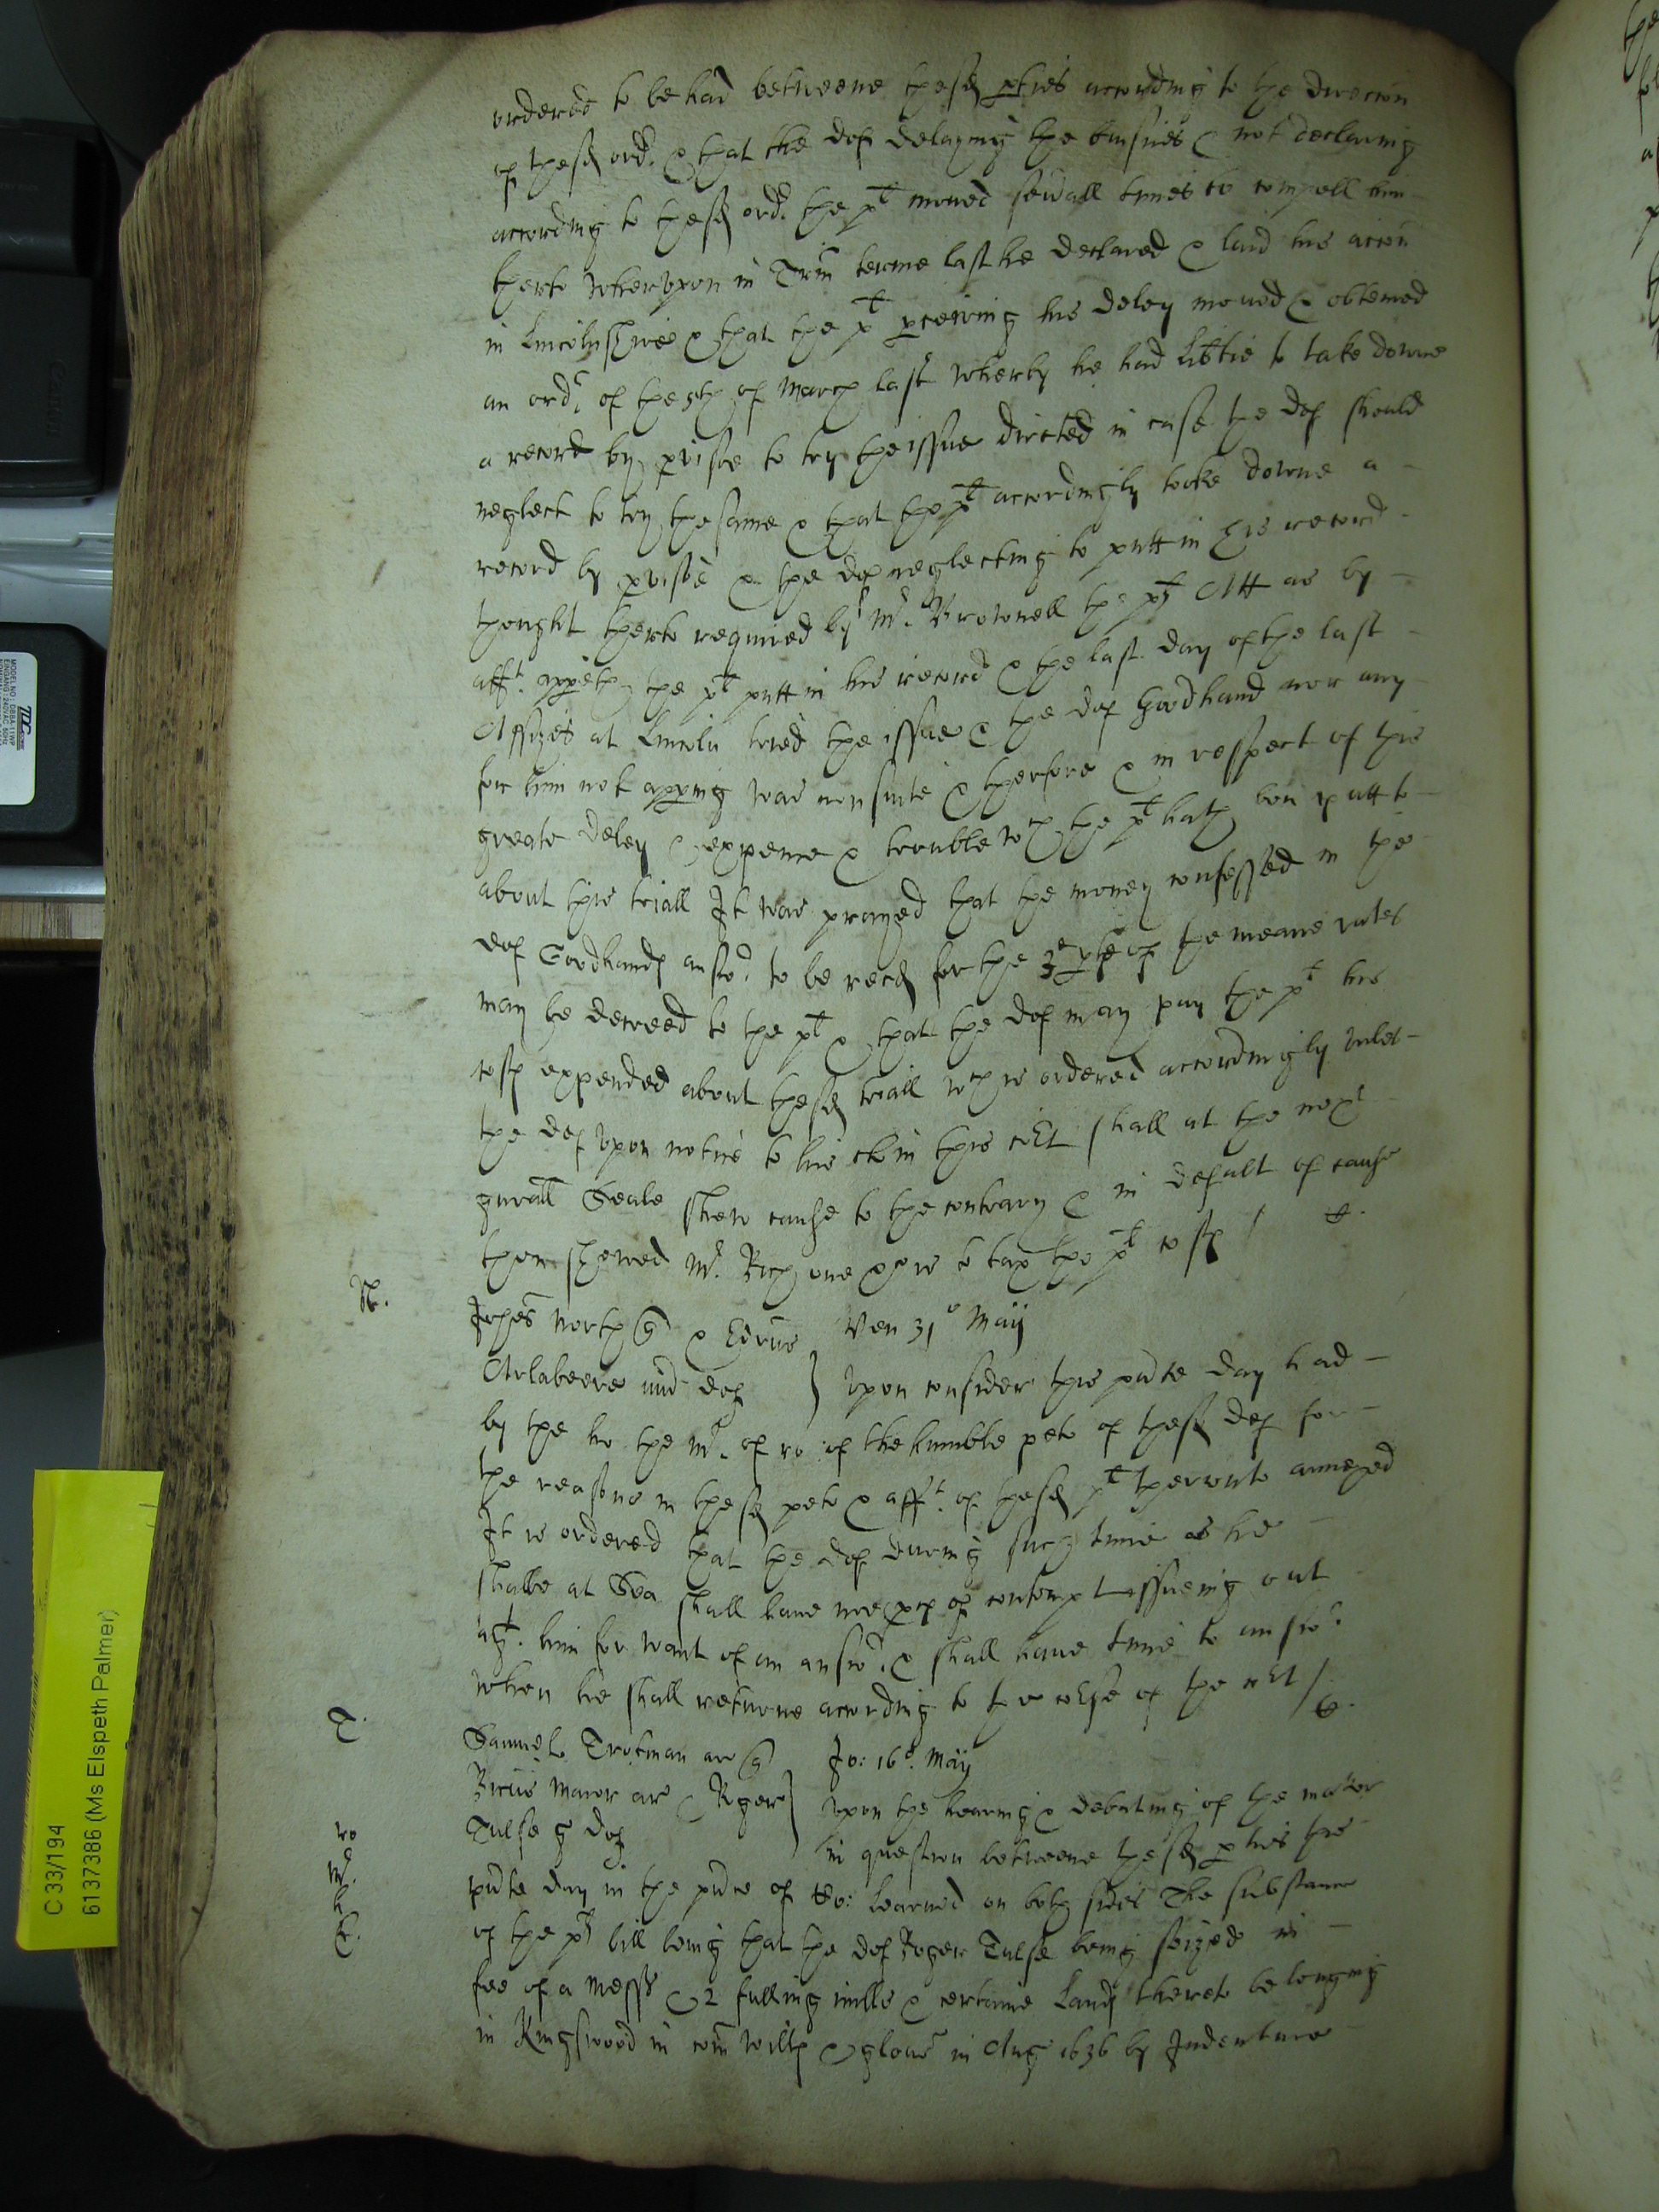 ordered to be had betweene these pties according to the direccon
of these ordr & that the def delaying the busines & not declaring
according to these ordr the plt moued seuall times to compell him
therto Wherupon in Trin terme last he declared & laid his accon
in Lincolnshire & that the plt pceiving his deley moued & obteined
an ordr of the 5th of March last wherby he had libtie to take downe
a record by pviso to try the issue directed in case the def should
neglect to try the same & that the plt accordingly tooke downe a
record by pviso & the def neglecting to putt in his record
thought therto required by Mr Brownell the plts Att as by
afft appeth the plt putt in his record & the last day of the last
Assizes at Lincoln tried the issue & the def Goodhand nor any
for him not apping was nonsuite & therfore & in respect of the
greate deley & expence & trouble wch the plt hath bin putt to
about this triall It was prayed that the money confessed in the
def Goodhands answr to be recd for the 3 pte of the meane rates
may be decreed to the plt & that the def may pay the plt his
costs expended about these triall wch is ordered accordingly unles
the def upon notice to his cl in this cot shall at the next
gnrall Seale shew cause to the contrary & in default of cause
then shewed Mr Rich one &c is to tax the plt costs
N.
Johes North q & Edrus Ven 31o Maij
Arlabeere unu def Upon consider this pnte day had
by the ho the Mr of ro of the humble peto of these def for
the reasons in these peto & afft of these plt therunto annexed
It is ordered that the def during such time as he
shalbe at Sea shall haue noe pces of contempt issueing out
agt him for want of an answr & shall haue time to answr
when he shall returne according to the course of the cot
T.
Samuel Trotman ar q Jo: 16o May
Ricus Maior ar & Roger Upon the hearing & debating of the matter
Tulse g def in question betweene these pties this
ro
Mr
h
pnte day in the pnce of Co: learned on both sides The substance
of the plts bill being that the def Roger Tulse being seized in
fee of a messe & 2 fulling mills & certaine Lands thereto belonging
in Kingswood in com Wilts & glouc in Aug 1636 by Indenture
C 33/194
6137386 (Ms Elspeth Palmer)